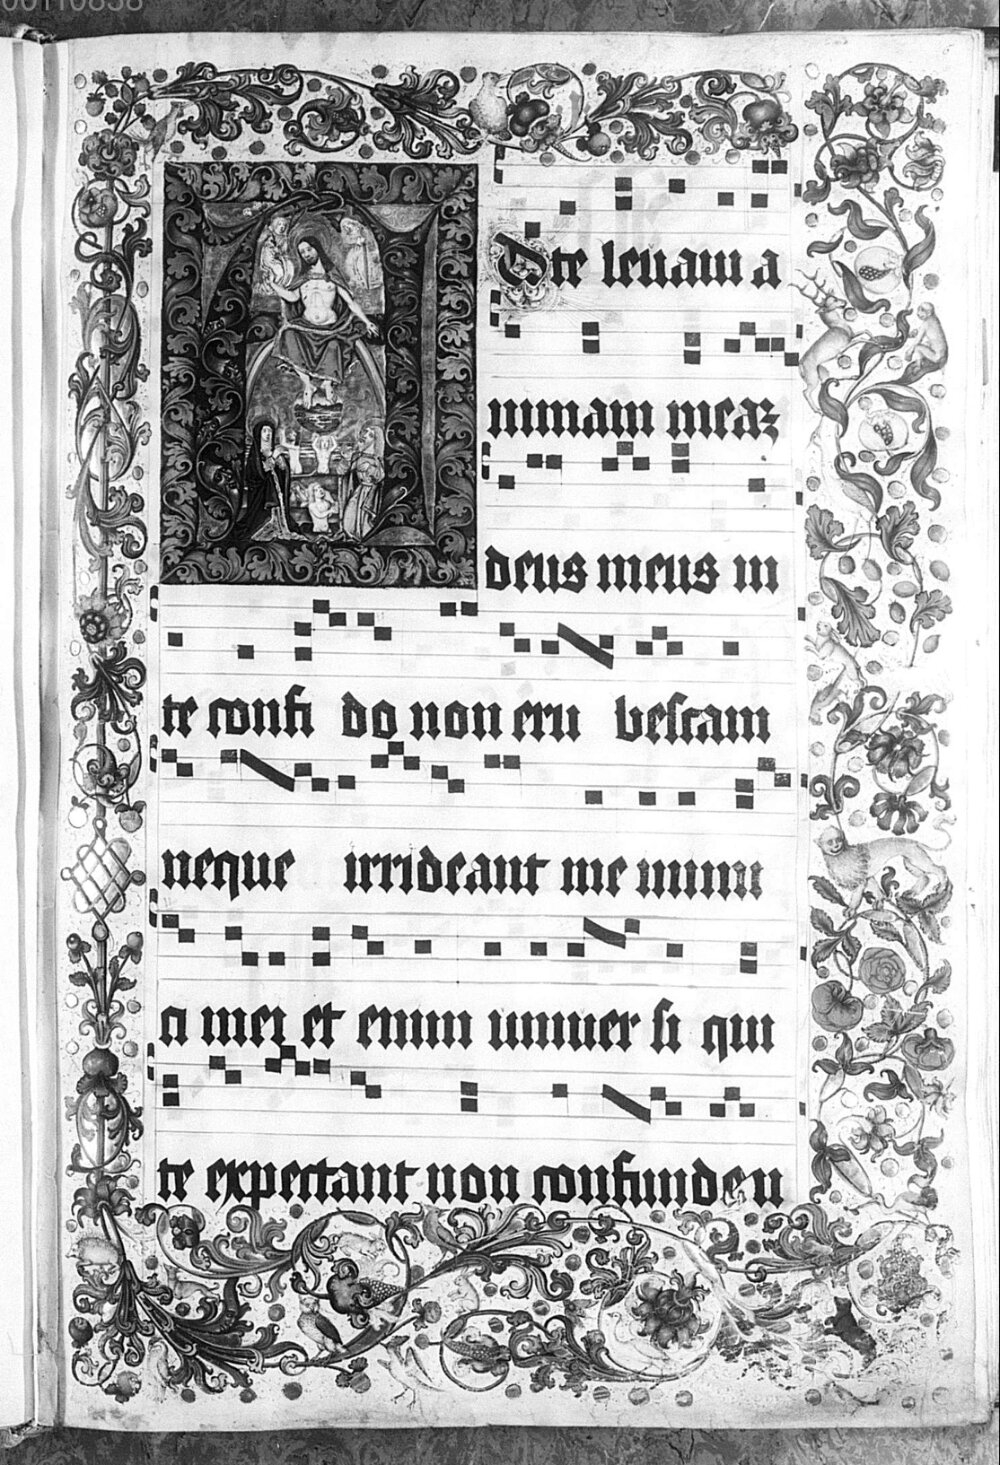 00110858
A
d te leuam a
nimam meaz
deus meus in
te confi do non eru bescam
neque irrideant me inimi
ci mei et enim uniuer si qui
te expectant non confunden